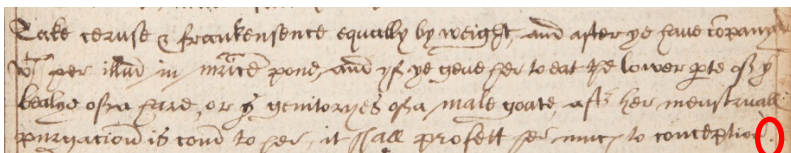 Take ceruse & frankensence equally by weight, and after ye have co̅pany
wt her illud in m̅rice pone, and yf ye geve her to eat the lower p̱te of y
bealye of a hare, or ye genitoryes of a male goate, aft̉ her menstruall
purgacioun is comd to her, it shall profett her muc̅ to conceptioun.